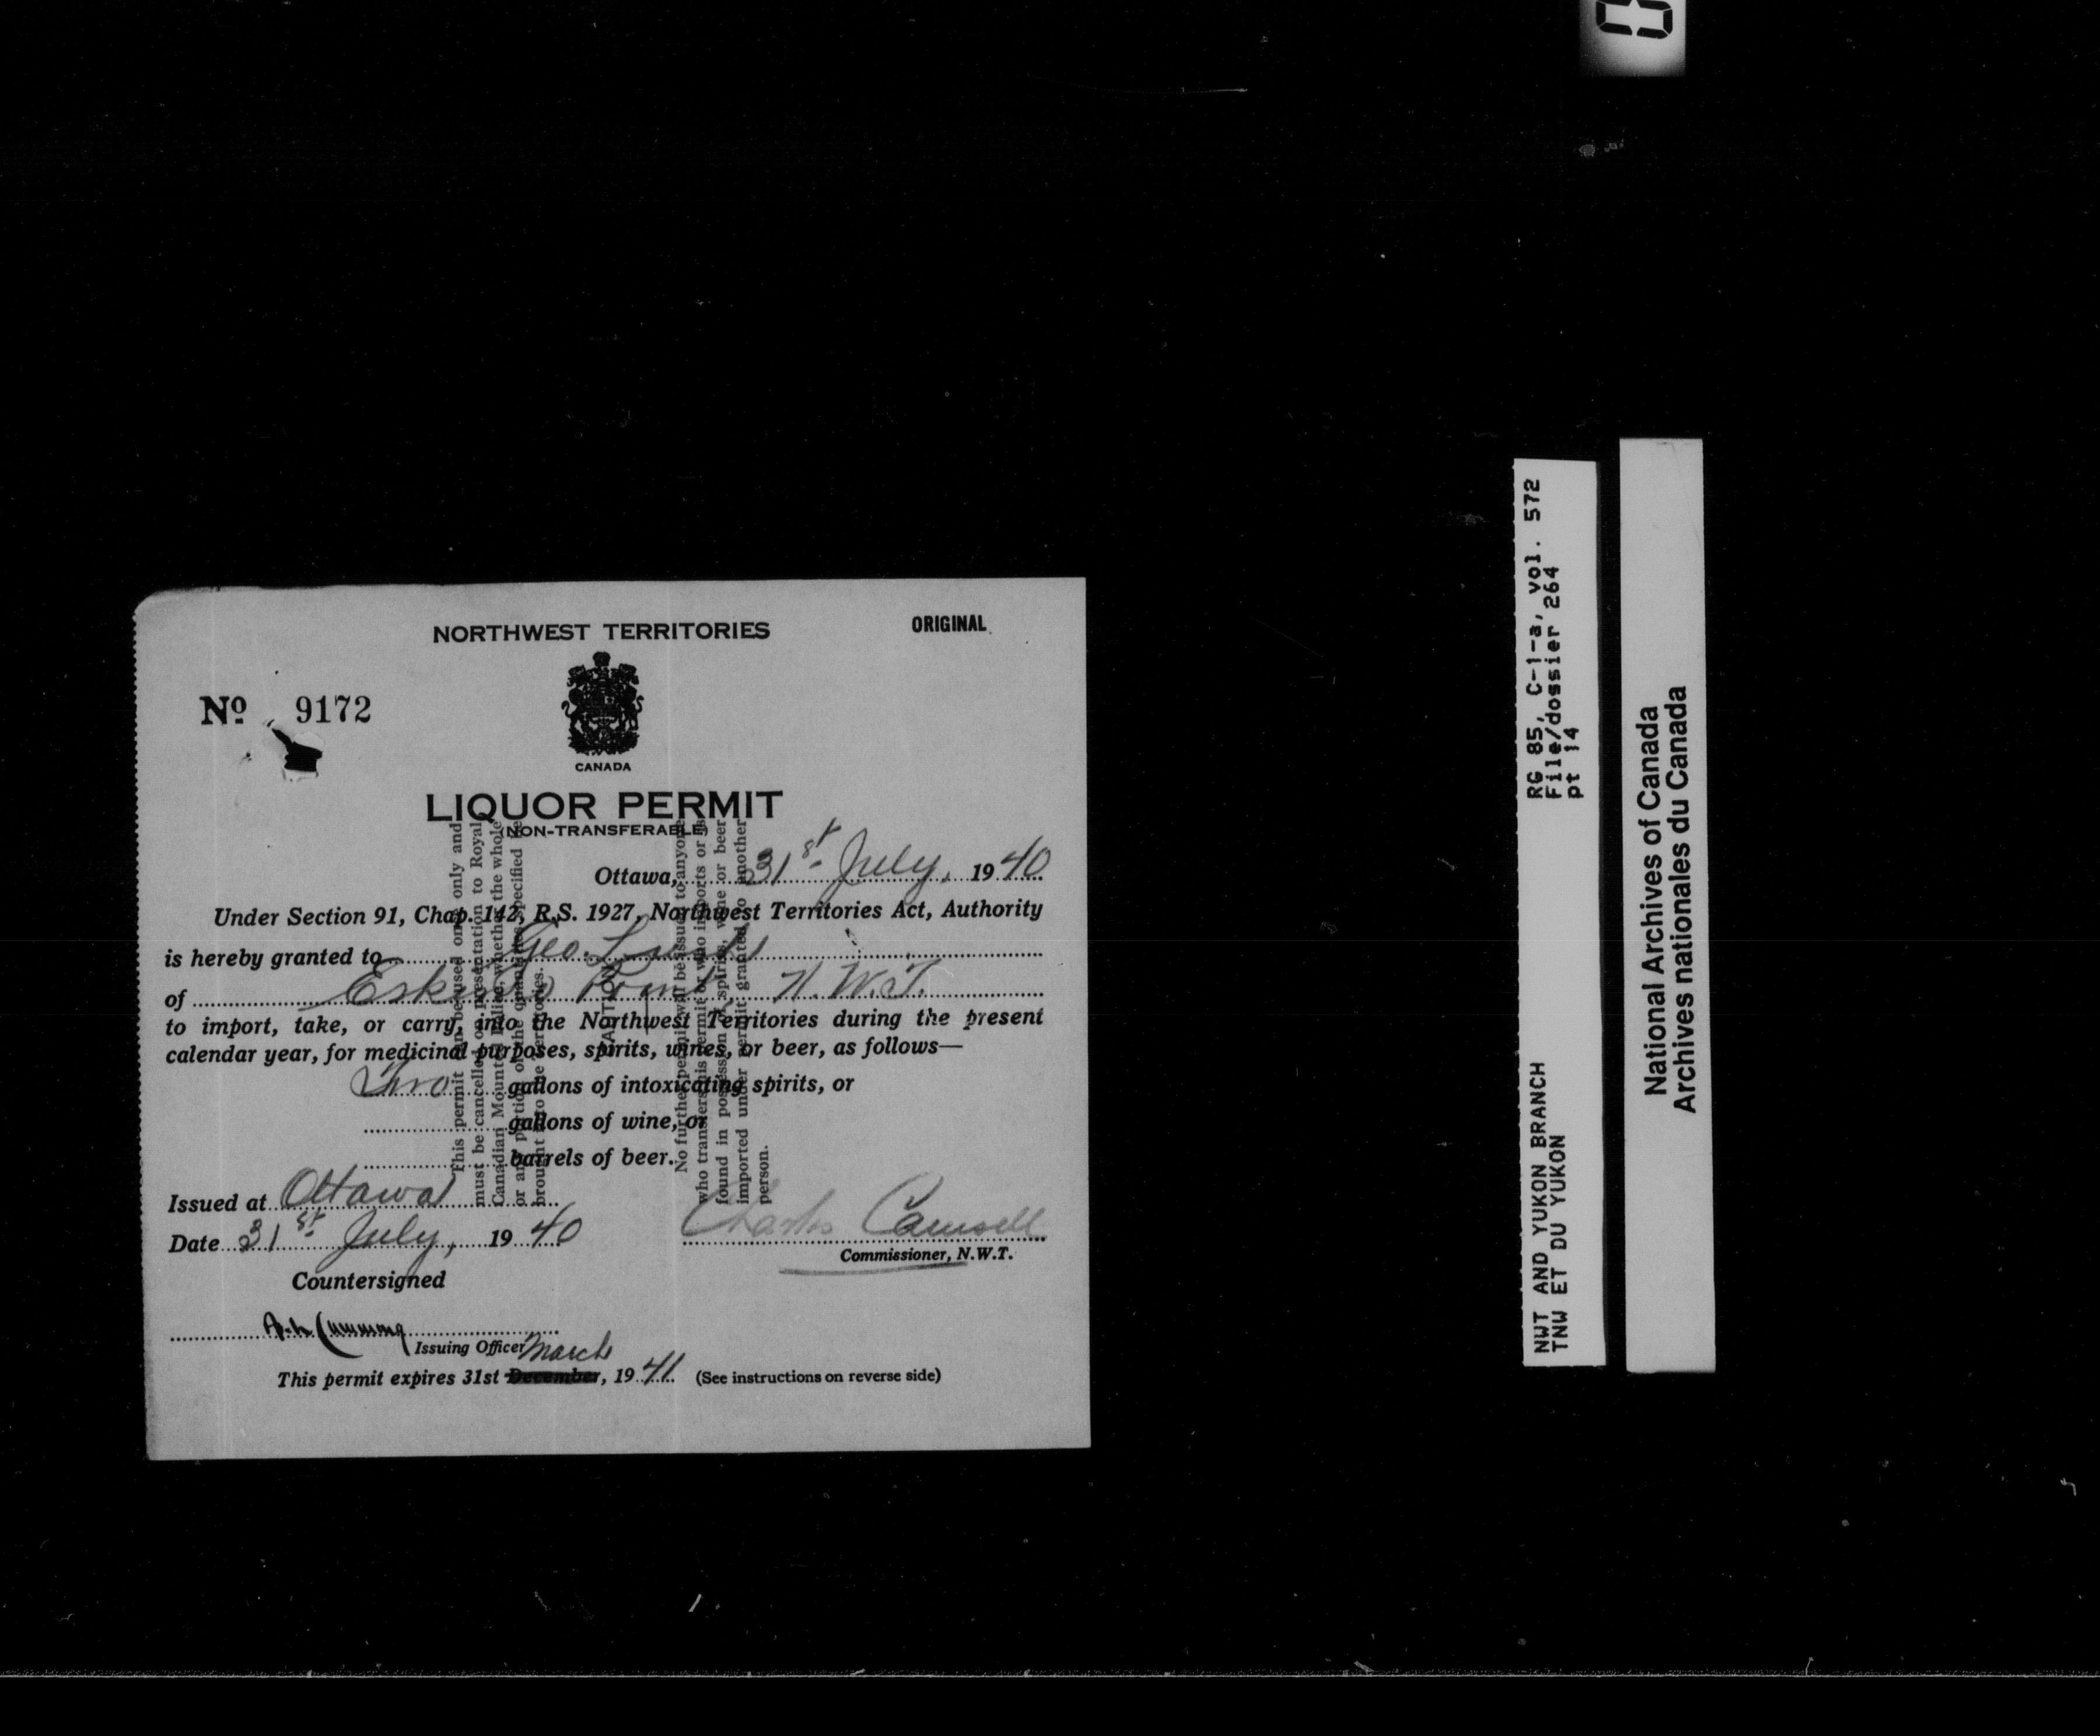 NORTHWEST TERRITORIES
ORIGINAL
Nº 9172
CANADA
LIQUOR PERMIT
(NON-TRANSFERABLE)
Ottawa, 31st July, 1940
Under Section 91, Chap. 142, R.S. 1927, Northwest Territories Act, Authority
is hereby granted to Geo.
of Eskimo Point N.W.T.
to import, take, or carry, into the Northwest Territories during the present
calendar year, for medicinal purposes, spirits, wines, or beer, as follows—
Two gallons of intoxicating spirits, or
gallons of wine, or
barrels of beer.
Issued at Ottawa
Date 31st July, 1940
Charles Camsell
Commissioner, N.W.T.
Countersigned
Cumming
Issuing Officer
March
This permit expires 31st December, 1941 (See instructions on reverse side)
This permit can be used once only and
must be cancelled on presentation to Royal
Canadian Mounted Police, whether the whole
or any portion of the quantities specified be
brought into the Territories.
CAUTION
No further permit will be issued to anyone
who transfers his permit or who imports or is
found in possession of spirits, wine or beer
imported under permit granted to another
person.
RG 85, C-1-a, vol. 572
File/dossier 264
pt 14
NWT AND YUKON BRANCH
TNW ET DU YUKON
National Archives of Canada
Archives nationales du Canada